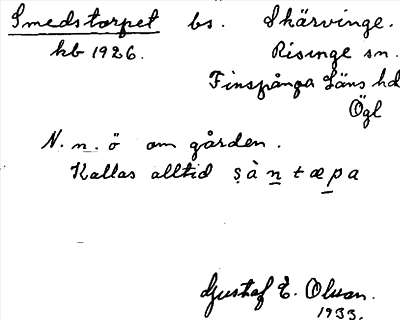 Smedstorpet bs. Skärvinge.
kb 1926. Risinge sn.
Finspånga läns hd
Ögl
N. n. ö om gården.
Kallas alltid ṣàn̲tæp̲a
Gustaf E. Olsson.
1933.